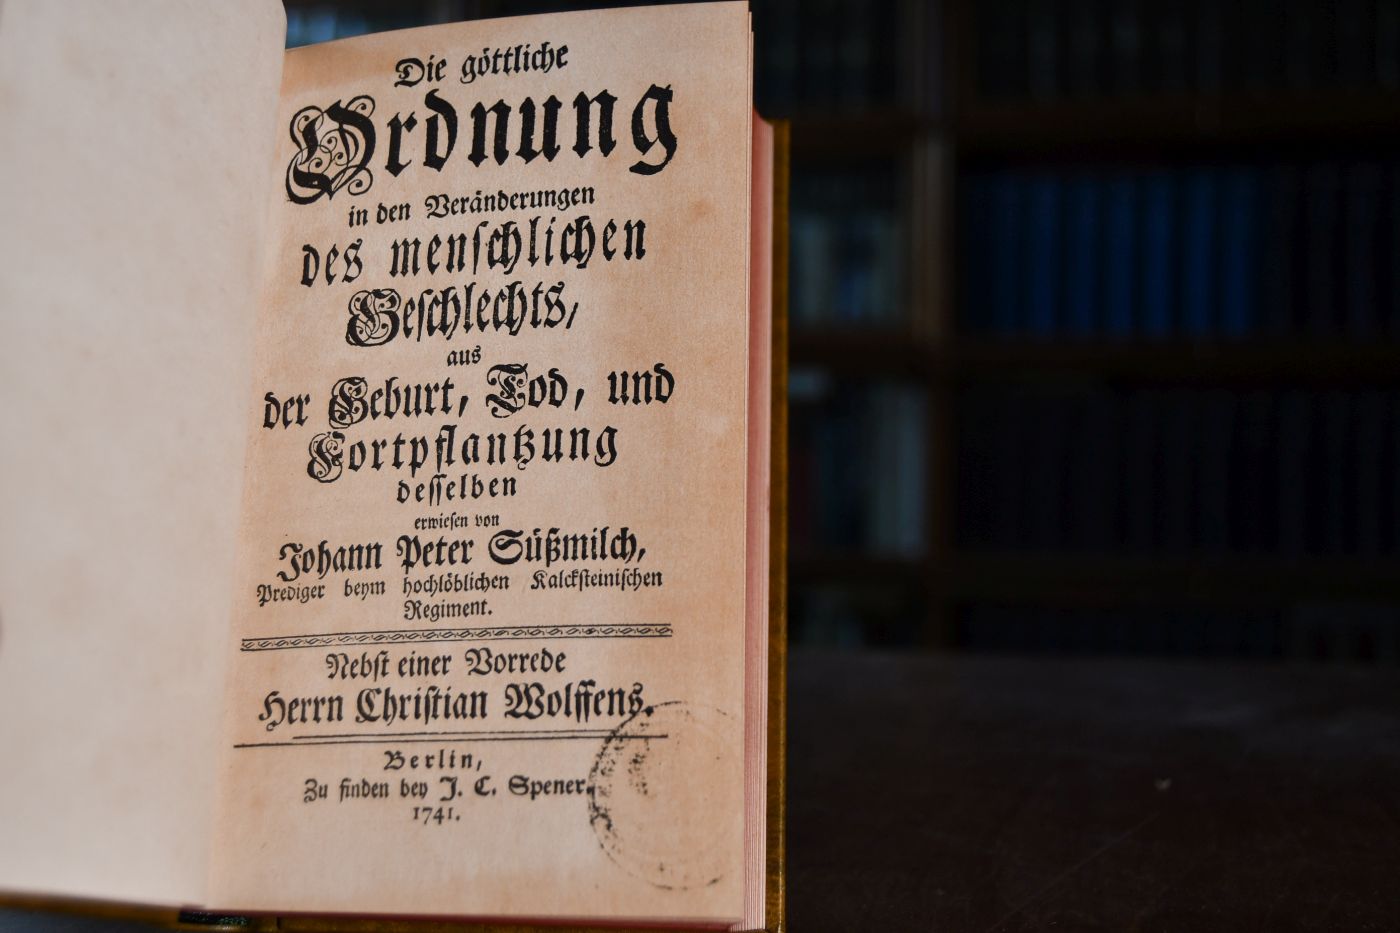 Die göttliche
Ordnung
in den Veränderungen
des menſchlichen
Geſchlechts,
aus
der Geburt, Tod, und
Fortpflantzung
deſſelben
erwieſen von
Johann Peter Süßmilch,
Prediger beym hochlöblichen Kalckſteiniſchen
Regiment.
Nebſt einer Vorrede
Herrn Chriſtian Wolffens.
Berlin,
Zu finden bey J. C. Spener.
1741.